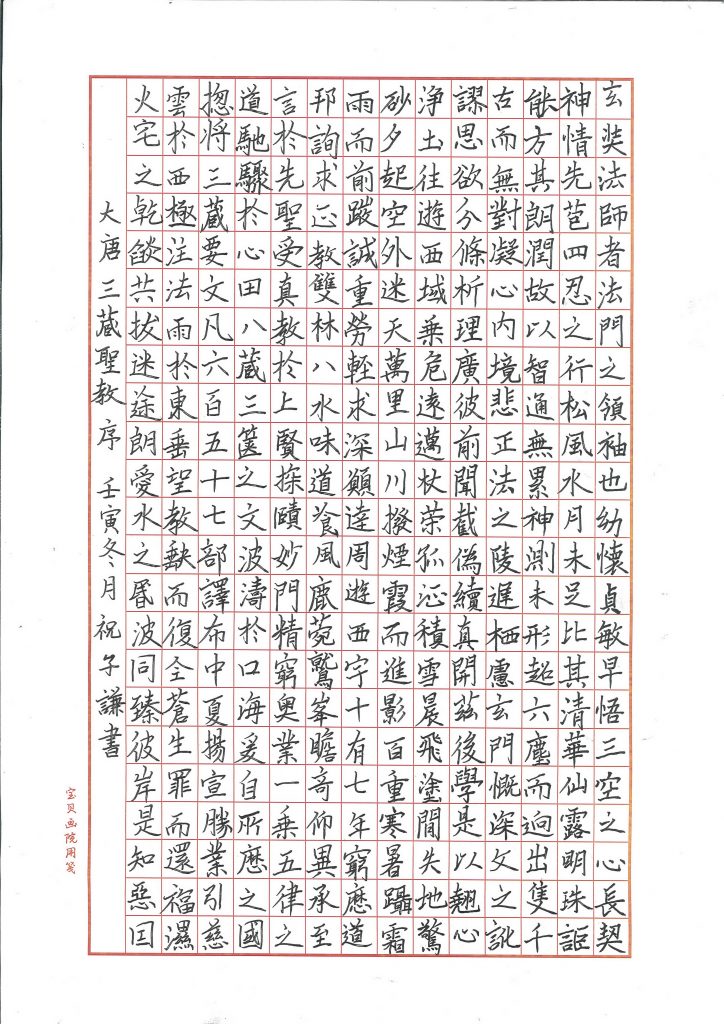 玄奘法師者法門之領袖也幼懷貞敏早悟三空之心長契
神情先苞四忍之行松風水月未足比其清華仙露明珠詎
能方其朗潤故以智通無累神測未形超六塵而迥出隻千
古而無對凝心內境悲正法之陵遲栖慮玄門慨深文之訛
謬思欲分條析理廣彼前聞截偽續真開茲後學是以翹心
淨土往遊西域乘危遠邁杖策孤征積雪晨飛塗間失地驚
砂夕起空外迷天萬里山川撥煙霞而進影百重寒暑躡霜
雨而前蹤誠重勞輕求深願達周遊西宇十有七年窮歷道
邦詢求正教雙林八水味道飡風鹿菀鷲峯瞻奇仰異承至
言於先聖受真教於上賢探賾妙門精窮奧業一乘五律之
道馳驟於心田八藏三篋之文波濤於口海爰自所歷之國
揔將三藏要文凡六百五十七部譯布中夏揚宣勝業引慈
雲於西極注法雨於東垂聖教缺而復全蒼生罪而還福濕
火宅之乾燄共拔迷途朗愛水之昏波同臻彼岸是知惡因
大唐三藏聖教序 壬寅冬月祝子謙書
宝贝画院用笺